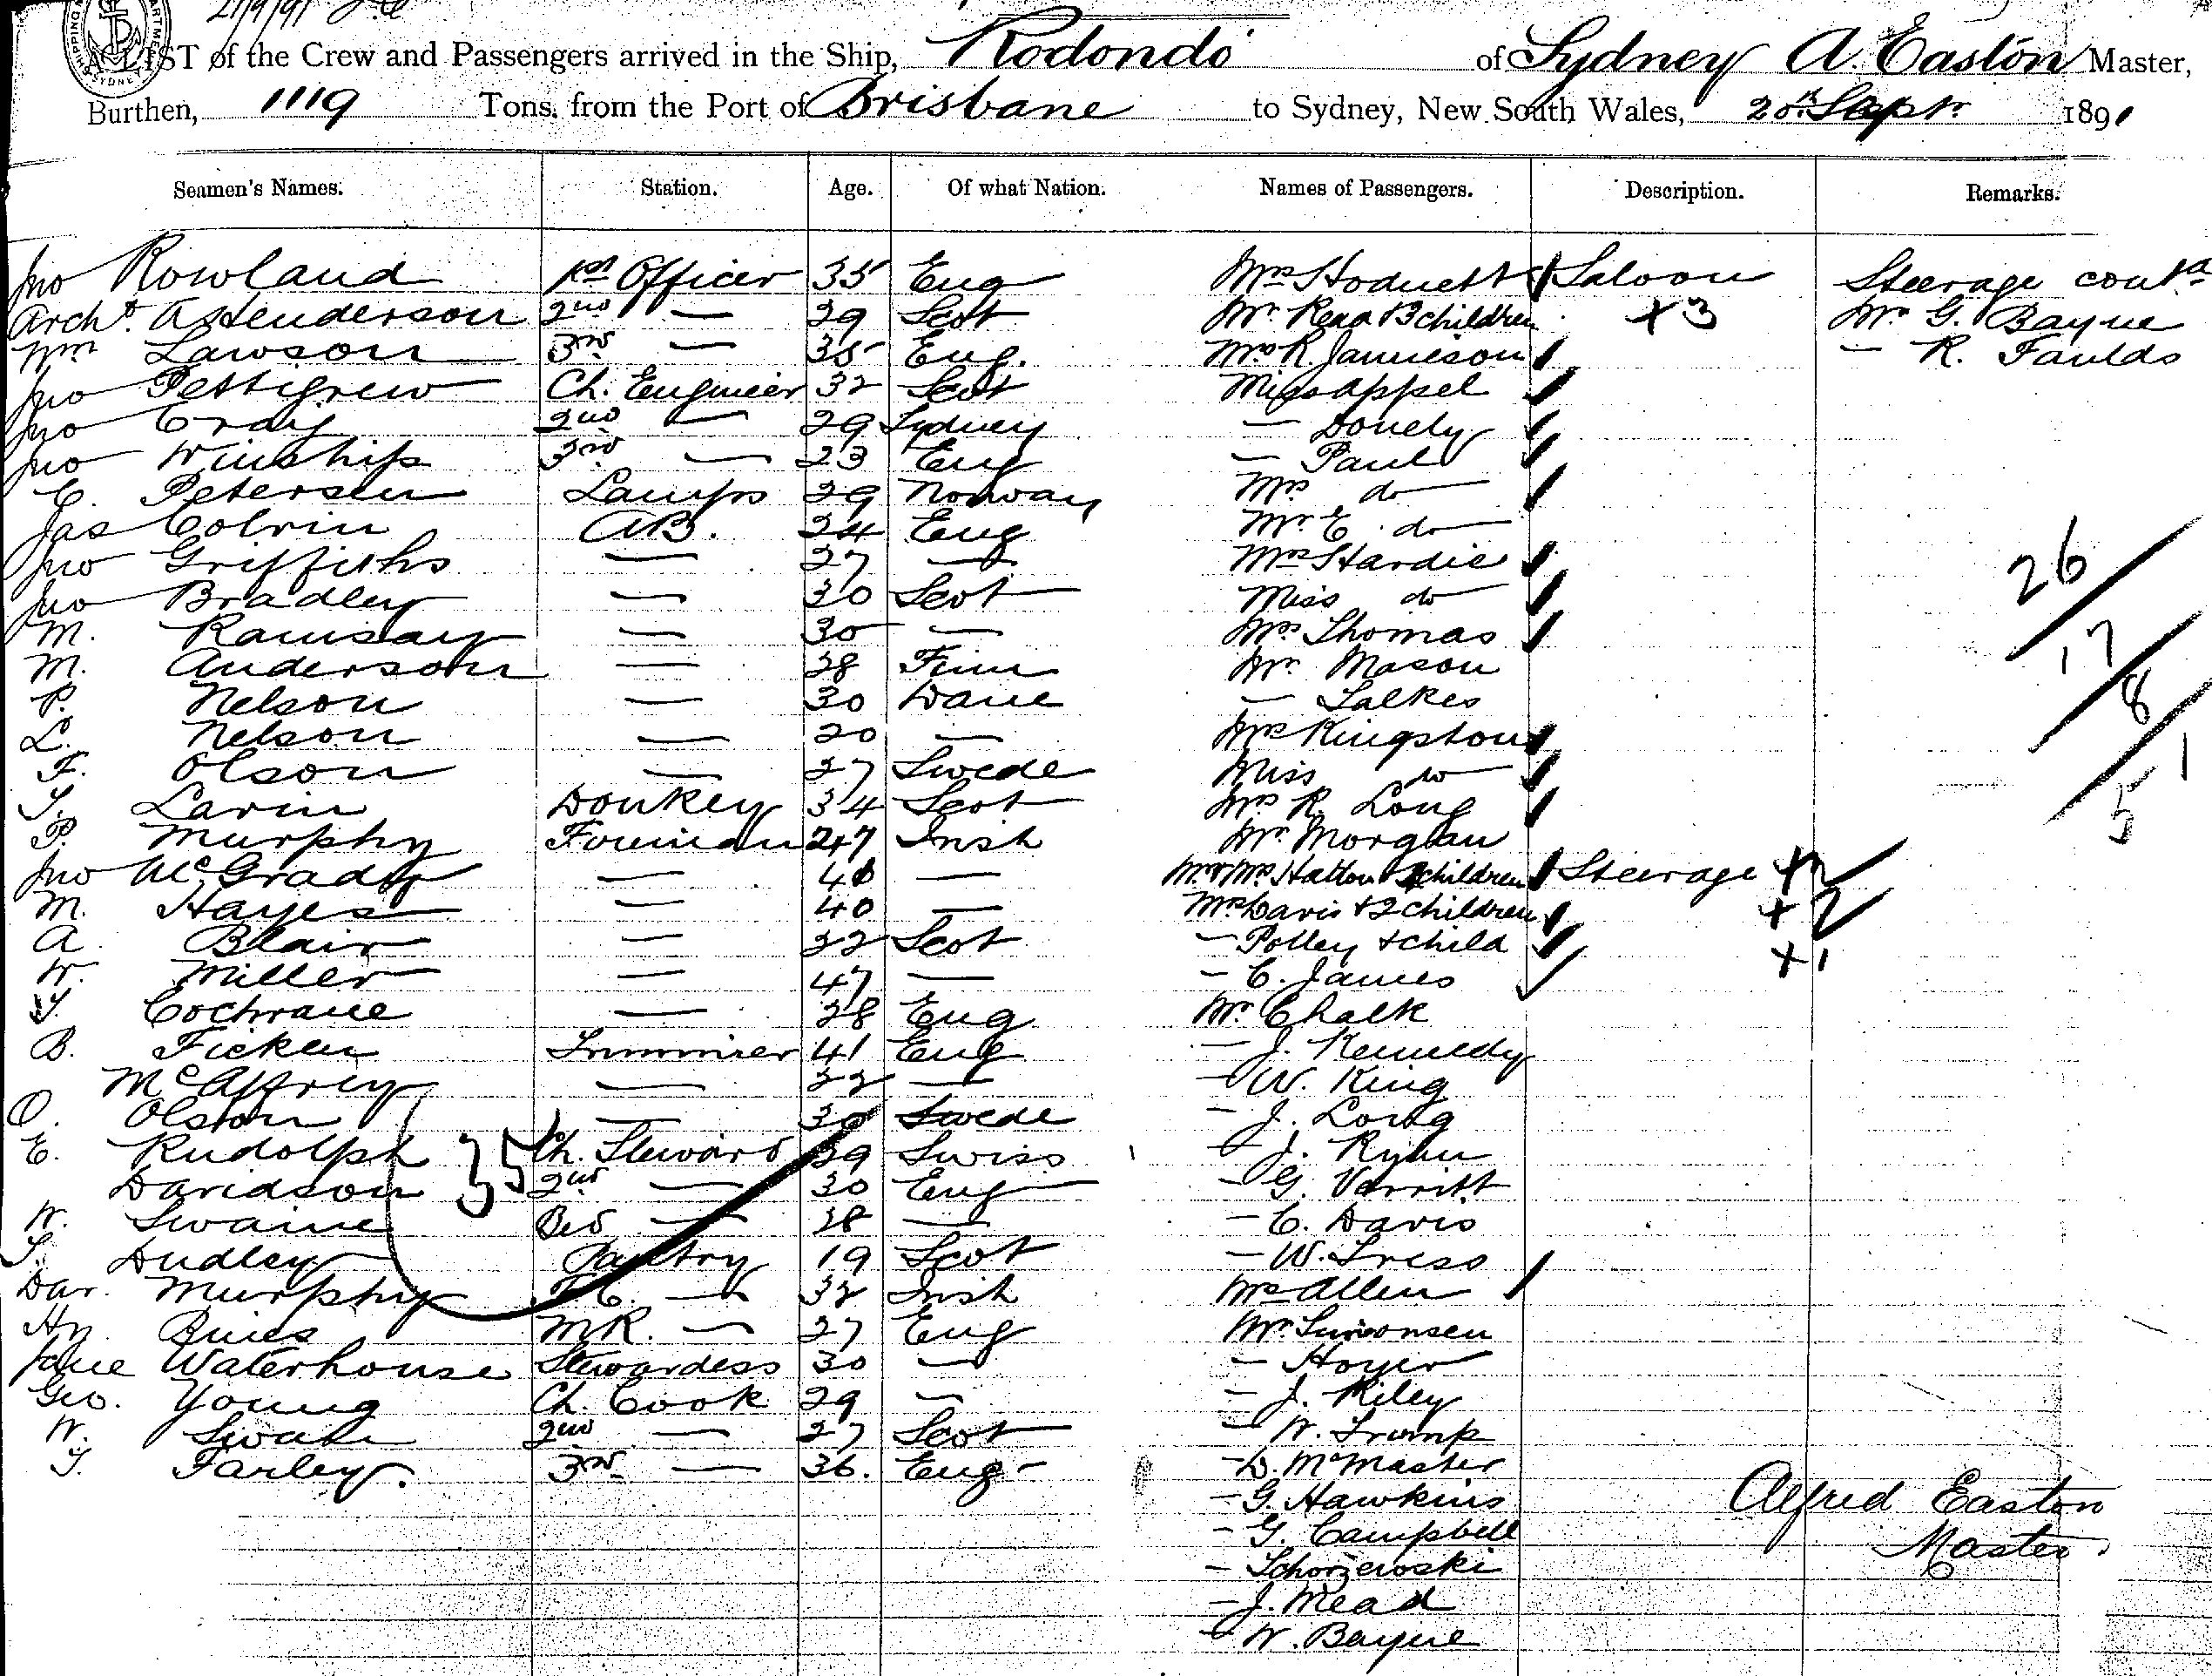 21/9/91
A LIST of the Crew and Passengers arrived in the Ship, Rodondo of Sydney A. Easton Master,
Burthen, 1119 Tons, from the Port of Brisbane to Sydney, New South Wales, 20th Sept 1891
Seamen's Names. Station. Age. Of what Nation. Names of Passengers. Description. Remarks.
Jno Rowland 1st Officer 35 Eng Mrs Hodnett Saloon Steerage contd
Archd. A Henderson 2nd — 29 Scot Mr. Rena & 3 children +3 Mr G. Bayne
Wm Lawson 3rd — 35 Eng. Mrs R. Jamieson — R. Faulds
Jno Pettigrew Ch. Engineer 32 Scot Miss Appel
Jno Craig 2nd — 29 Sydney — Donely
Jno Winship 3rd — 23 Eng — Paul
C. Petersen Lamps 29 Norway Mrs do
Jas Colvin AB. 24 Eng Mr. E. do
Jno Griffiths — 27 — Mrs Hardie
Jno Bradley — 30 Scot Miss do
M. Ramsay — 30 — Mrs Thomas
M. Anderson — 28 Finn Mr. Mason
P. Nelson — 30 Dane — Lalkes
L. Nelson — 20 — Mrs Kingston
F. Olson — 27 Swede Miss do
T. Lavin Donkey 34 Scot Mrs R. Long
P. Murphy Fireman 47 Irish Mr. Morgan
Jno McGrady — 40 — Mr & Mrs Hatton & 2 children Steerage +2
M. Hayes — 40 — Mrs Davis + 2 children +2
A. Blair — 22 Scot — Polley + child +1
W. Miller — 47 — — C. James
T. Cochrane — 28 Eng Mr. Chalk
B. Ficken Trimmer 41 Eng — J. Kennedy
McAffrey — 22 — — W. King
O. Olson — 30 Swede — J. Long
E. Rudolph Ch. Steward 39 Swiss — J. Ryan
Davidson 2nd — 30 Eng — G. Verritt
W. Swaine Bed — 28 — — C. Davis
T. Dudley Pantry 19 Scot — W. Tress
Dav. Murphy F.C. — 32 Irish Mrs Allen
Hy. Bines M.R. — 27 Eng Mr. Simonsen
Jane Waterhouse Stewardess 30 — — Hoyer
Geo. Young Ch. Cook 29 — — J. Riley
W. Swan 2nd — 27 Scot — W. Trump
T. Farley. 3rd — 36. Eng — D. McMaster
— G. Hawkins Alfred Easton
— G. Campbell Master.
— Schorzewski
— J. Mead
— W. Bayne
35
26
17
8
1
5